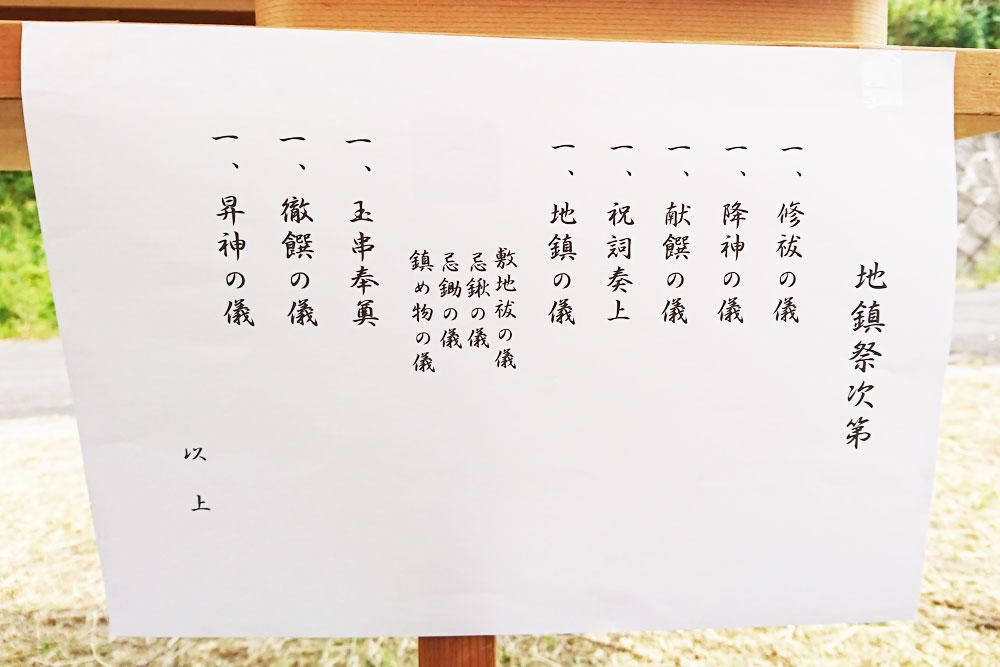 地鎮祭次第
一、修祓の儀
一、降神の儀
一、献饌の儀
一、祝詞奏上
一、地鎮の儀
敷地祓の儀
忌鍬の儀
忌鋤の儀
鎮め物の儀
一、玉串奉奠
一、徹饌の儀
一、昇神の儀
以上